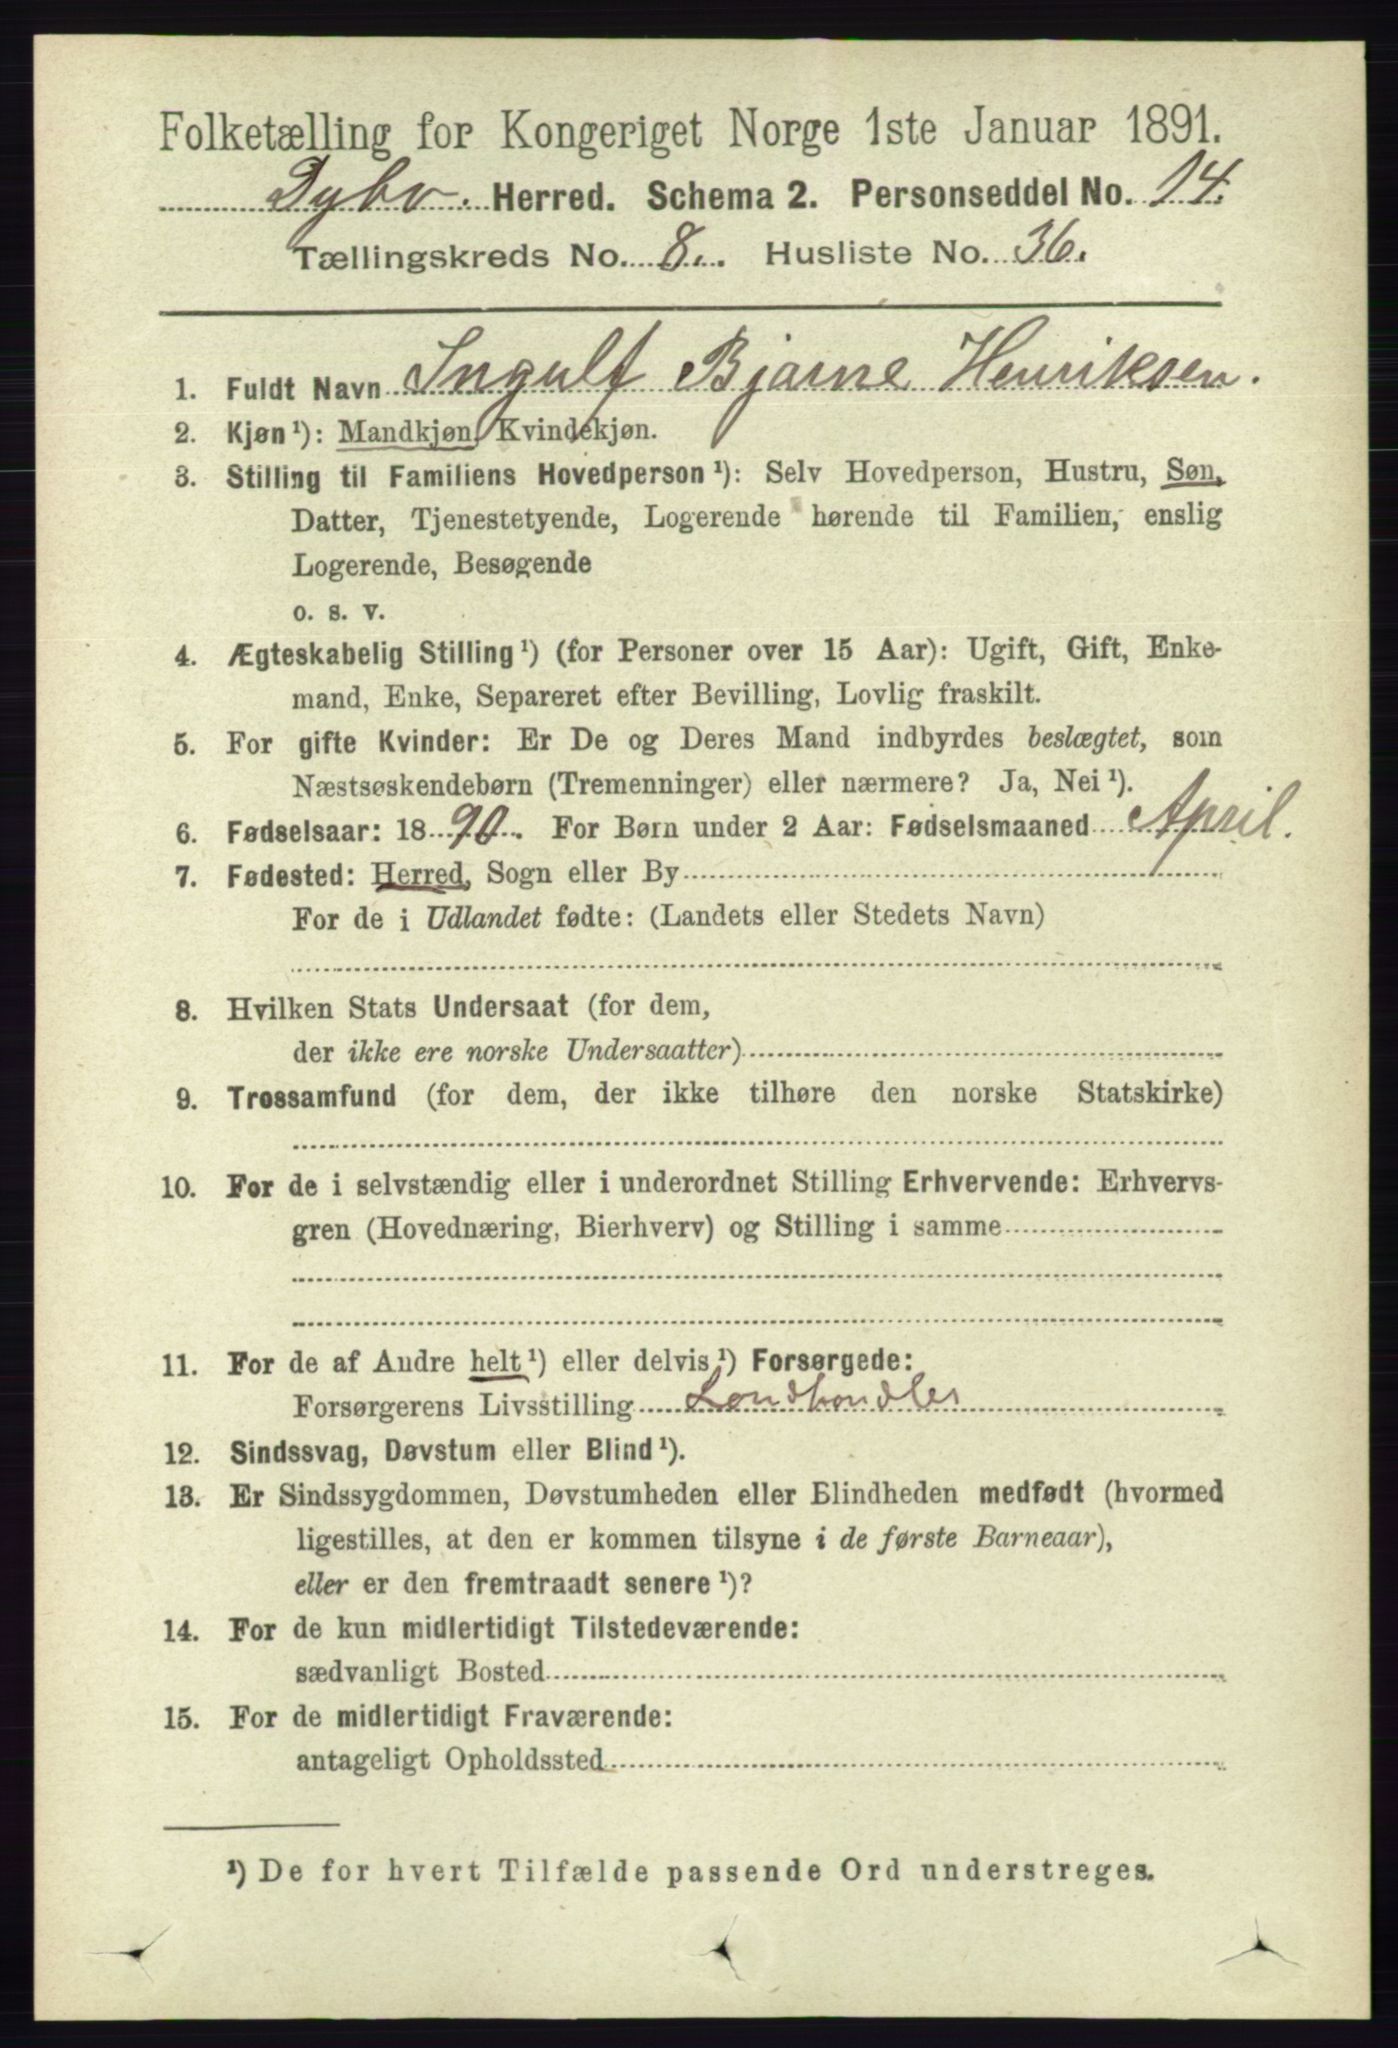 Folketælling for Kongeriget Norge 1ste Januar 1891.
Dybv. Herred. Schema 2. Personseddel No. 14.
Tællingskreds No. 8. Husliste No. 36.
1. Fuldt Navn Ingulf Bjarne Henriksen.
2. Kjøn¹): Mandkjøn, Kvindekjøn.
3. Stilling til Familiens Hovedperson¹): Selv Hovedperson, Hustru, Søn,
Datter, Tjenestetyende, Logerende hørende til Familien, enslig
Logerende, Besøgende
o. s. v.
4. Ægteskabelig Stilling¹) (for Personer over 15 Aar): Ugift, Gift, Enke-
mand, Enke, Separeret efter Bevilling, Lovlig fraskilt.
5. For gifte Kvinder: Er De og Deres Mand indbyrdes beslægtet, som
Næstsøskendebørn (Tremenninger) eller nærmere? Ja, Nei¹).
6. Fødselsaar: 1890. For Børn under 2 Aar: Fødselsmaaned April.
7. Fødested: Herred, Sogn eller By
For de i Udlandet fødte: (Landets eller Stedets Navn)
8. Hvilken Stats Undersaat (for dem,
der ikke ere norske Undersaatter)
9. Trossamfund (for dem, der ikke tilhøre den norske Statskirke)
10. For de i selvstændig eller i underordnet Stilling Erhvervende: Erhvervs-
gren (Hovednæring, Bierhverv) og Stilling i samme
11. For de af Andre helt¹) eller delvis¹) Forsørgede:
Forsørgerens Livsstilling Landhandler
12. Sindssvag, Døvstum eller Blind¹).
13. Er Sindssygdommen, Døvstumheden eller Blindheden medfødt (hvormed
ligestilles, at den er kommen tilsyne i de første Barneaar),
eller er den fremtraadt senere¹)?
14. For de kun midlertidigt Tilstedeværende:
sædvanligt Bosted
15. For de midlertidigt Fraværende:
antageligt Opholdssted
¹) De for hvert Tilfælde passende Ord understreges.